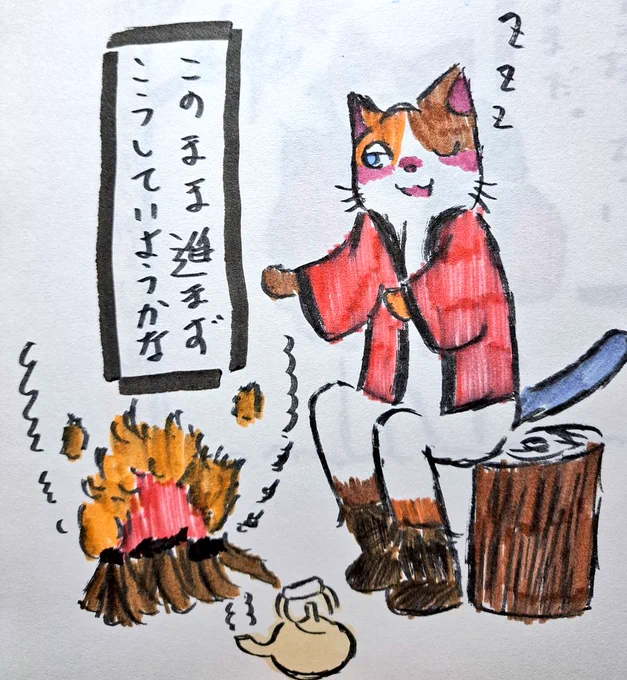 このまま進まず
こうしていようかな
z
z
z